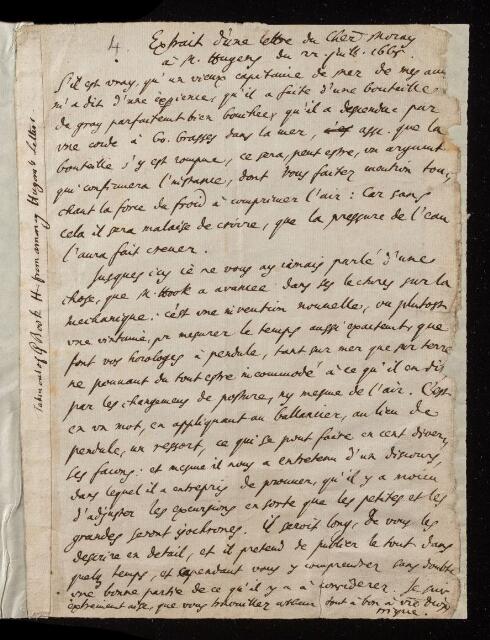 4 Extrait d'une lettre du Cher Moray
à M. Hugens du 22. Juill. 1665.
S'il est vray, qu'un vieux capitaine de mer de mes amis
m'a dit d'une expience, qu'il a faite d'une bouteille
de gray parfaitement bien bouchee, qu'il a descendue par
une corde à 60. brasses dans la mer, asse. que la
bouteille s'y est rompue, ce sera, peut estre, un argument
qui confirmera l'instance, dont vous faites mention tou-
chant la force du froid à comprimer l'air: Car sans
cela il sera malaisé de croire, que la pression de l'eau
l'aura fait crever.
Jusques icy iè ne vous ay iamais parlé d'une
chose, que M. Hook a avancée dans ses lectures sur la
mechanique: c'est une invention nouvelle, ou plutost
une vintaine, pr mesurer le temps aussi exactemt, que
font vos horologes à pendule, tant sur mer que sur terre
ne pouvant du tout estre incommodé à ce qu'il en dit
par les changemens de posture, ny mesme de l'air. C'est
en un mot, en appliquant au ballancier, au lieu de
pendule, un ressort, ce qui se peut faire en cent diver-
ses facons: et mesme il nous a entretenu d'un discours,
dans lequel il a entrepris de prouver, qu'il y a moien
d'adjuster les excursions en sorte que les petites et les
grandes seront isochrones. Il seroit long, de vous les
descrire en detail, et il pretend de publier le tout dans
quelq temps, et cependant vous y comprendrez sans doubte
une bonne partie de ce qu'il y a à considerer. Je suis
extremement aise, que vous travaillez tout à bon à
Taken out of Book H from among Hugens Letters.